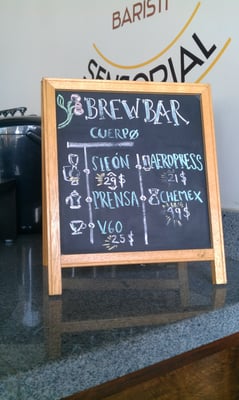 BARISTI
SENSORIAL
BREW BAR
CUERPO
SIFÓN
29 $
PRENSA
V60
25 $
AEROPRESS
21 $
CHEMEX
49 $